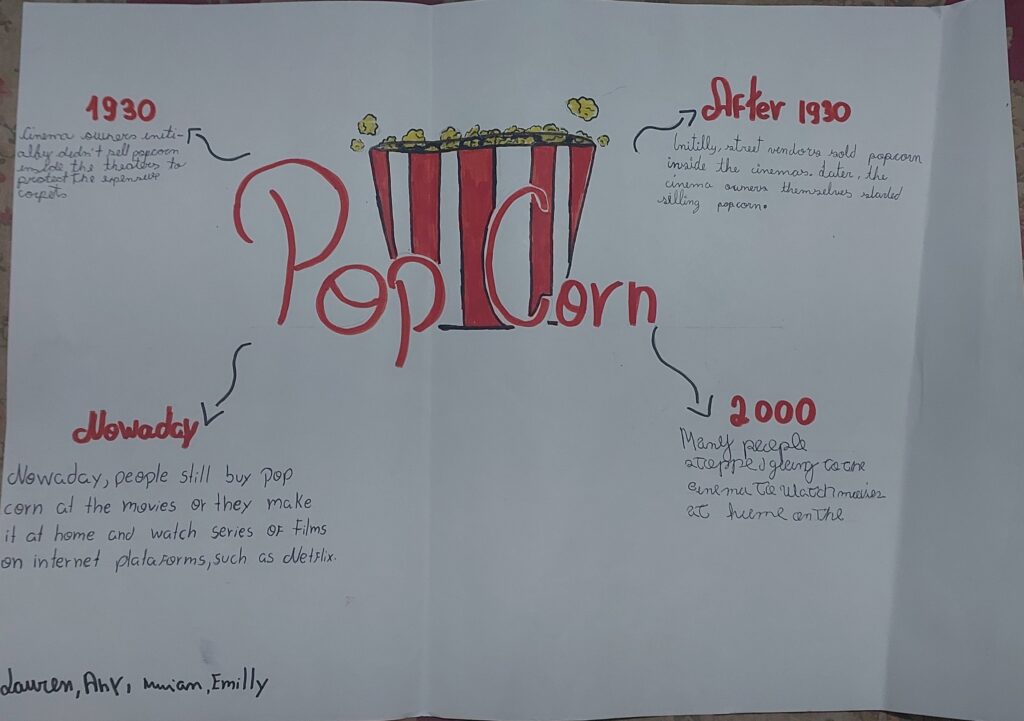 1930
Cinema owners initi-
alby didn't sell popcorn
inside the theaters to
protect the expensive
carpets
After 1930
Initilly, street vendors sold popcorn
inside the cinemas. Later, the
cinema owners themselves started
silling popcorn.
PopCorn
Nowaday
Nowaday, people still buy pop
corn at the movies or they make
it at home and watch series of films
on internet plataforms, such as Netflix.
2000
Many people
stopped going to the
cinema to watch movies
at home on the
Lauren, Any, Mirian, Emilly